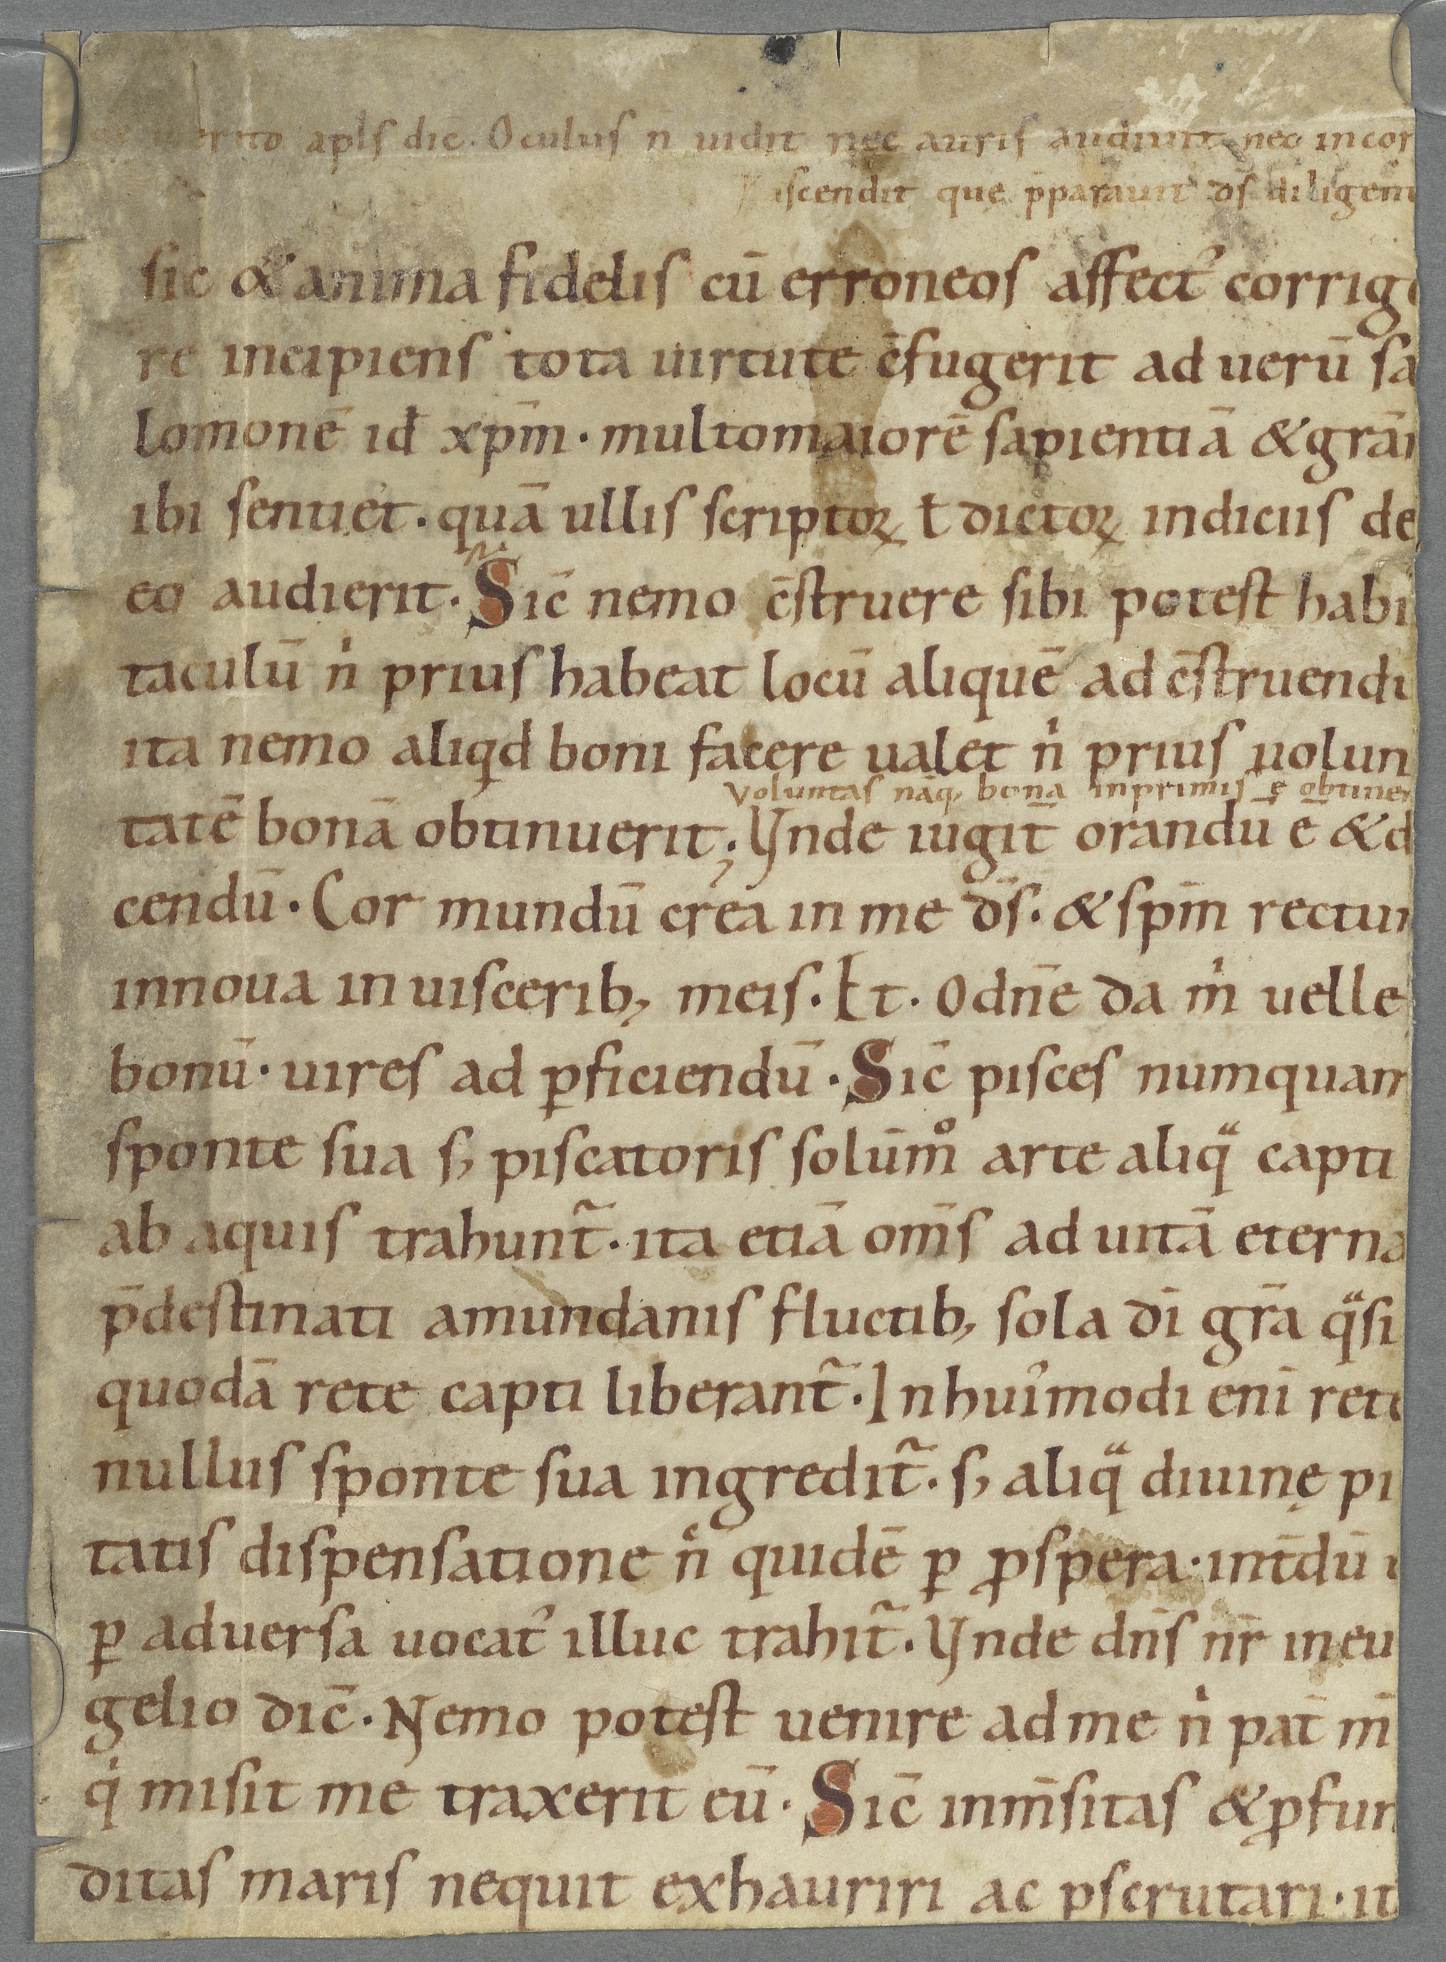 merito apls dic̄. Oculus n̄ uidit nec auris audiuit nec in cor
ascendit que p̄parauit ds̄ diligen
sic & anima fidelis cū erroneos affect᾿ corrige
re incipiens tota uirtute c̄fugerit ad uerū sa
lomonē id̄ xp̄m · multo maiorē sapientiā & grā
ibi sentiet · quā ullis scriptoꝝ ł dictoꝝ indiciis de
eo audierit · Sic̄ nemo c̄struere sibi potest habi
taculū nͥ prius habeat locū aliquē ad c̄struendi
ita nemo aliqd boni facere ualet nͥ prius uolun
Voluntas nāq; bona inprimis ē obtinen
tatē bonā obtinuerit; Vnde iugit̄ orandū ē & d
cendū · Cor mundū crea in me ds̄ · & sp̄m rectum
innoua in uiscerib; meis · Et · O dn̄e da mͥ uelle
bonū · uires ad ꝑficiendū · Sic̄ pisces numquam
sponte sua s; piscatoris solūmͦ arte aliqͣ capti
ab aquis trahunt᷑ · ita etiā om̄s ad uitā eterna
p̄destinati a mundanis fluctib; sola dī grā qͣsi
quodā rete capti liberant᷑ · In hui᾿modi enī rete
nullus sponte sua ingredit᷑ · s; aliqͣ diuinę pi
tatis dispensatione nͨ quidē ꝑ ꝓspera · int̄dū
ꝑ aduersa uocat᾿ illuc trahit᷑ · Vnde dn̄s nr̄ in eu
gelio dic̄ · Nemo potest uenire ad me nͥ pat̄ m̄
qͥ misit me traxerit eū · Sic̄ inm̄sitas & ꝓfun
ditas maris nequit exhauriri ac ꝑscrutari · it